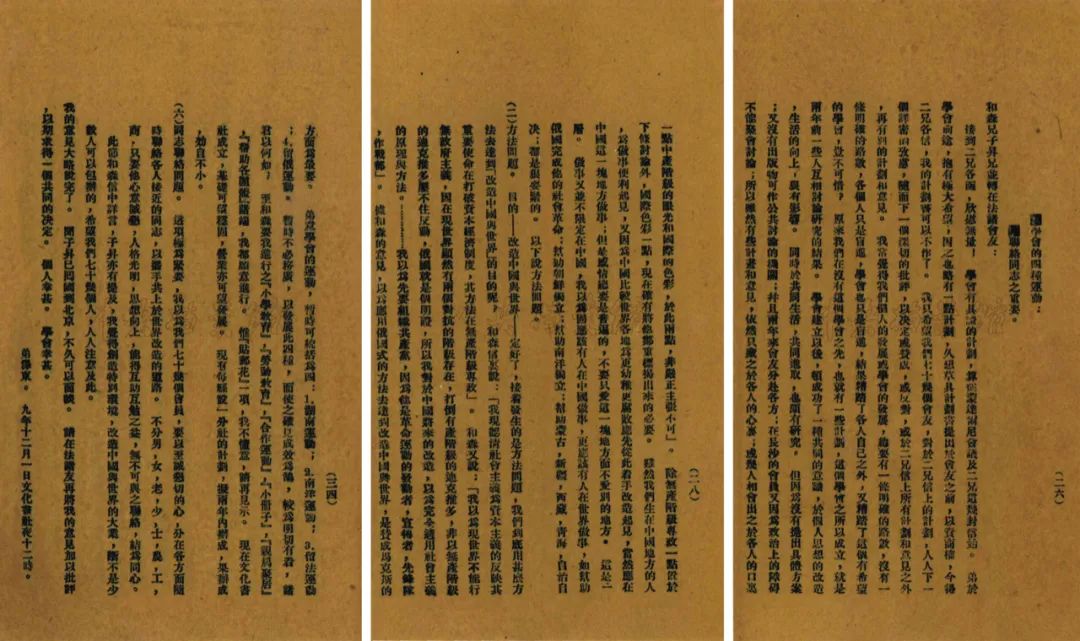 (二六)
㊃學會的四種運動；
㊄聯絡同志之重要。
和森兄子昇兄並轉在法諸會友：
接到二兄各函，欣慰無量！學會有具體的計劃，算從蒙達爾尼會議及二兄這幾封信始。弟於
學會前途，抱有極大希望，因之也略有一點計劃，久想草具計劃書提出於會友之前，以資商榷，今得
二兄各信，我的計劃書可以不作了。我只希望我們七十幾個會友，對於二兄信上的計劃，人人下一
個詳密的攷慮，隨而下一個深切的批評，以決定或贊成，或反對，或於二兄信上所有計劃和意見之外
，再有別的計劃和意見。我常覺得我們個人的發展或學會的發展，總要有一條明確的路數，沒有一
條明確的路數，各個人只是盲進，學會也只是盲進，結果糟踏了各人自己之外，又糟踏了這個有希望
的學會，豈不可惜？原來我們在沒有這個學會之先，也就有一些計劃，這個學會之所以成立，就是
兩年前一些人互相討論研究的結果。學會建立以後，頓成功了一種共同的意識，於個人思想的改造
，生活的向上，很有影響。同時於共同生活，共同進取，也頗有研究。但因爲沒有提出具體方案
；又沒有出版物可作公共討論的機關；并且兩年來會友分赴各方；在長沙的會員又因爲政治上的障碍
不能聚會討論；所以雖然有些計畫和意見，依然只藏之於各人的心裏；或幾人相會出之於各人的口裏
(二八)
一點中產階級的眼光和國際的色彩，於此兩點，非嚴正主張不可」。除無產階級專政一點放於
下條討論外，國際色彩一點，現在確有將他鄭重標揭出來的必要。雖然我們生在中國地方的人
，爲做事便利起見，又因爲中國比較世界各地爲更幼稚更腐敗應先從此着手改造起見，當然應在
中國這一塊地方做事；但是感情總要是普遍的，不要只愛這一塊地方而不愛別的地方。這是一
層。做事又並不限定在中國，我以爲固應該有人在中國做事，更應該有人在世界做事，如幫助
俄國完成他的社會革命；幫助朝鮮獨立；幫助南洋獨立；幫助蒙古，新疆，西藏，青海，自治自
決；都是很要緊的。以下說方法問題。
(二)方法問題。目的——改造中國與世界——定好了，接着發生的是方法問題，我們到底用甚麼方
法去達到「改造中國與世界」的目的呢。和森信裏說：「我現認清社會主義爲資本主義的反映其
重要使命在打破資本經濟制度，其方法在無產階級專政」。和森又說：「我以爲現世界不能行
無政府主義，因在現世界顯然有兩個對抗的階級存在，打倒有產階級的迪克推多，非以無產階級
的迪克推多壓不住反動，俄國就是個明證，所以我對於中國將來的改造，以爲完全適用社會主義
的原理和方法。………我以爲先要組織共產黨，因爲他是革命運動的發動者，宣傳者，先鋒隊
，作戰部」。據和森的意見，以爲應用俄國式的方法去達到改造中國與世界，是贊成馬克斯的
(三四)
方面爲最要。弟意學會的運動，暫時可統括爲四：1.湖南運動；2.南洋運動；3.留法運動
；4.留俄運動。暫時不必務廣，以發展此四種，而使之確見成效爲鵠，較爲明切有着，諸
君以何如；至和森要我進行之「小學教育」，「勞動教育」，「合作運動」，「小冊子」，「親屬聚居」
，「幫助各團體」諸端，我都願意進行。惟「貼郵花」一項，我不懂意，請再見示。現在文化書
社成立，基礎可望穩固，營業亦可望發展。現有每縣設一分社的計劃，擬兩年內辦成，果辦成
，効自不小。
(六)同志聯絡問題。這項極爲緊要，我以爲我們七十幾個會員，要以至誠懇切的心，分在各方面隨
時聯絡各人接近的同志，以携手共上於世界改造的道路。不分男，女，老，少，士，農，工，
商，只要他心意誠懇，人格光明，思想向上，能得互助互勉之益，無不可與之聯絡，結爲同心。
此節和森信中詳言，子昇亦有提及，我覺得創造特別環境，改造中國與世界的大業，斷不是少
數人可以包辦的，希望我們七十幾個人，人人注意及此。
我的意見大略說完了。聞子昇已回國到北京，不久可以面談。請在法諸友再將我的意見加以批評
，以期求得一個共同的決定。個人幸甚。學會幸甚。
弟澤東。九年十二月一日文化書社夜十二時。